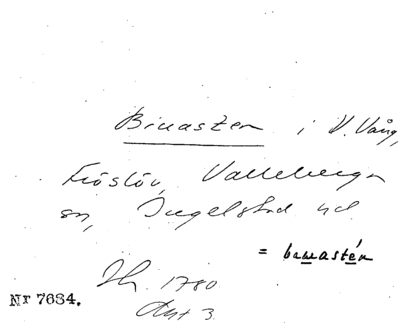 Binasten i V. Vång,
Fröslöv, Valleberga
sn, Ingelstad hd
= binastén
Sk. 1780
Akt 3.
Nr 7634.